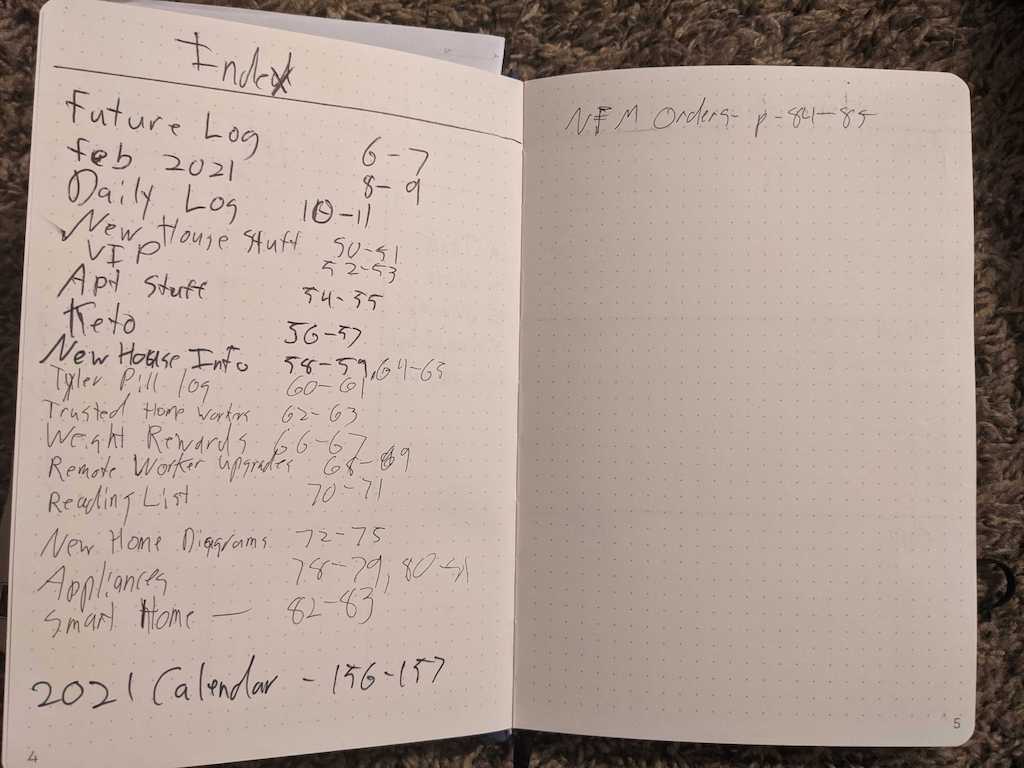 Index
Future Log 6-7
Feb 2021 8-9
Daily Log 10-11
New House Stuff 50-51
VIP 52-53
Apt Stuff 54-55
Keto 56-57
New House Info 58-59, 64-65
Tyler Pill log 60-61
Trusted Home workers 62-63
Weight Rewards 66-67
Remote Worker upgrades 68-69
Reading List 70-71
New Home Diagrams 72-75
Appliances 78-79, 80-81
Smart Home — 82-83
2021 Calendar - 156-157
4
NFM Orders- p-84-85
5